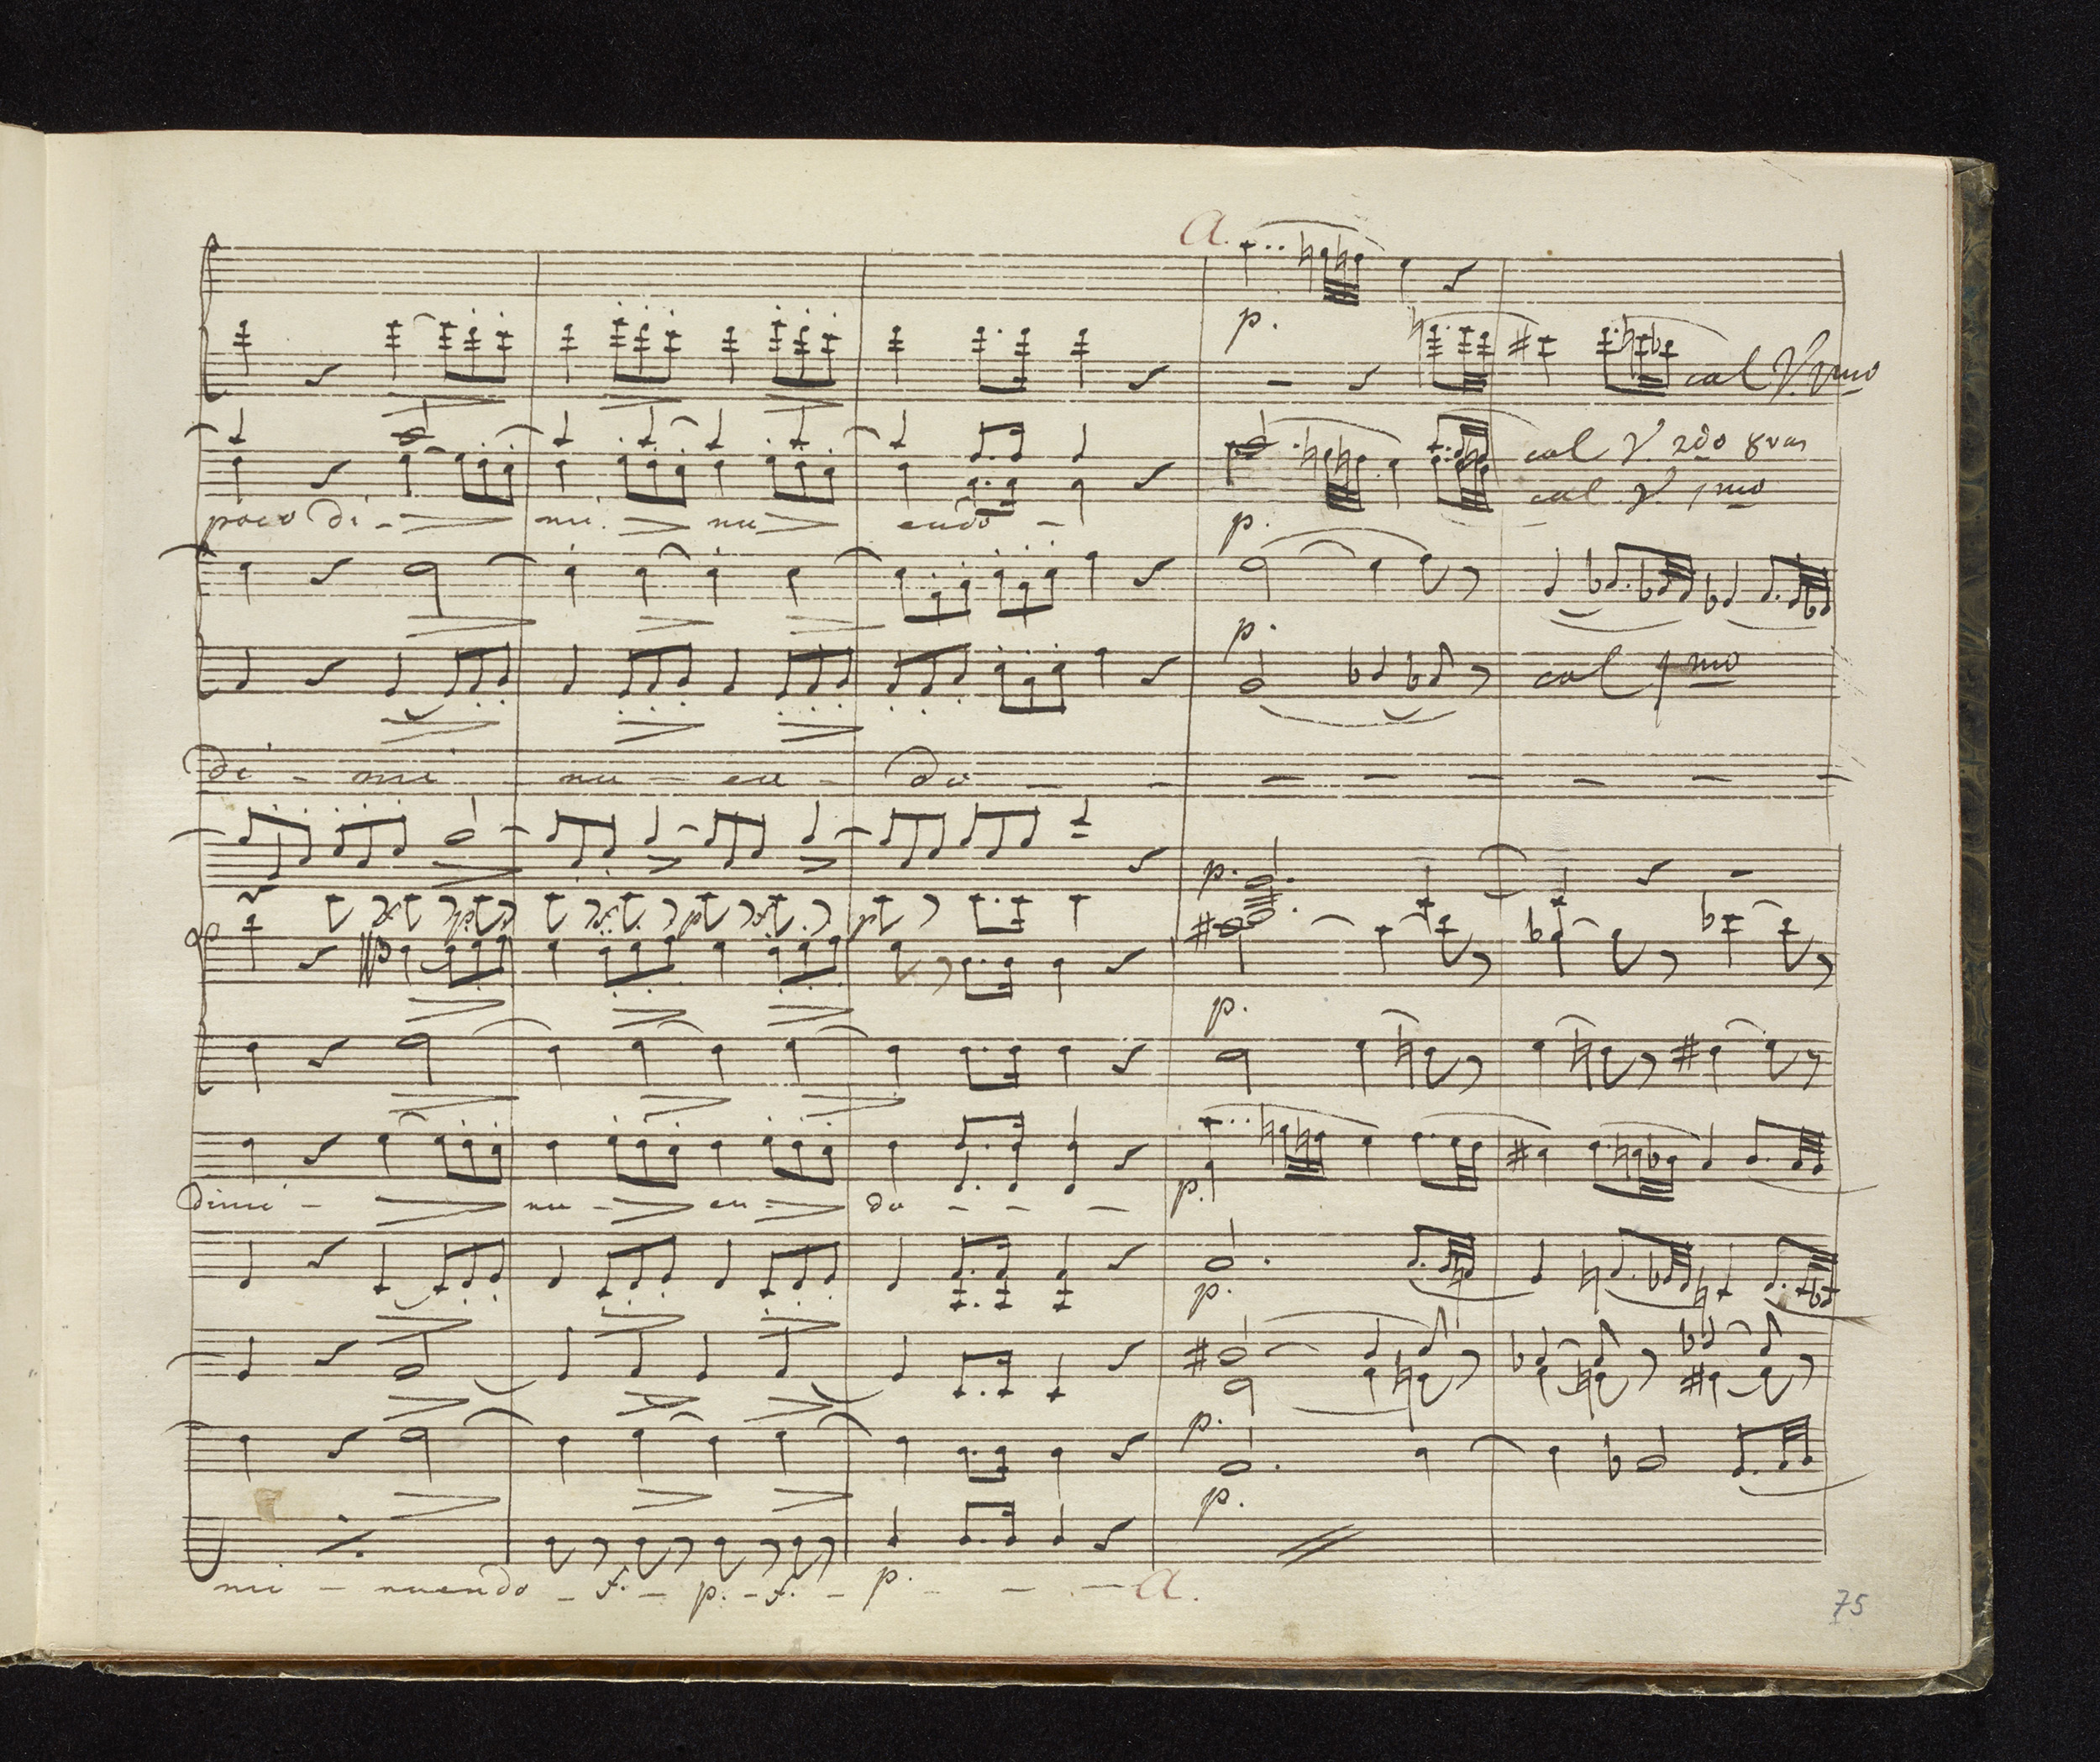 a.
p.
col V. 1mo
col V. 2do 8va
col V. 1mo
poco di - mi - nu - endo -
p.
p.
col 1mo
di - mi - nu - en - do - - - - - - - -
p.
p.
dimi - nu - en - do - - -
p.
p.
p.
p.
mi - nuendo - f. - p. - f. - p. - - - a.
75